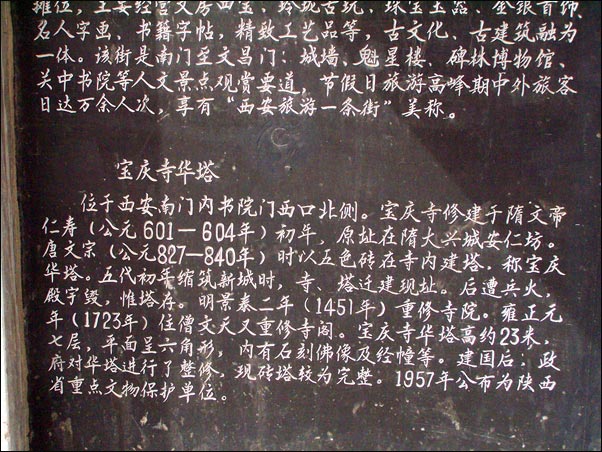 摊位，主要经营文房四宝、玲珑古玩、珠宝玉器、金银首饰、
名人字画、书籍字帖，精致工艺品等，古文化、古建筑融为
一体。该街是南门至文昌门：城墙、魁星楼、碑林博物馆、
关中书院等人文景点观赏要道，节假日旅游高峰期中外旅客
日达万余人次，享有“西安旅游一条街”美称。
宝庆寺华塔
位于西安南门内书院门西口北侧。宝庆寺修建于隋文帝
仁寿（公元601—604年）初年，原址在隋大兴城安仁坊。
唐文宗（公元827—840年）时以五色砖在寺内建塔，称宝庆
华塔。五代初年缩筑新城时，寺、塔迁建现址。后遭兵火，
殿宇毁，惟塔存。明景泰二年（1451年）重修寺院。雍正元
年（1723年）住僧文天又重修寺阁。宝庆寺华塔高约23米，
七层，平面呈六角形，内有石刻佛像及经幢等。建国后，政
府对华塔进行了整修，现砖塔较为完整。1957年公布为陕西
省重点文物保护单位。